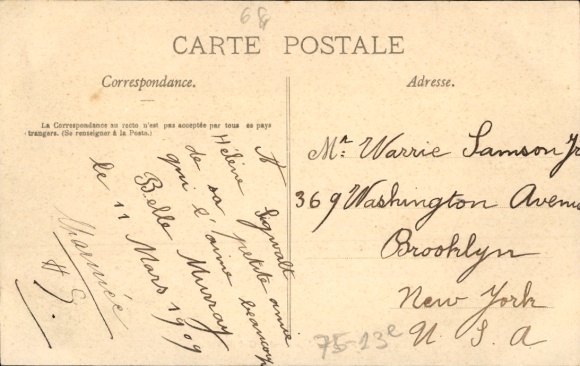 68
CARTE POSTALE
Correspondance.
Adresse.
La Correspondance au recto n'est pas acceptée par tous es pays
trangers. (Se renseigner à la Poste.)
A
Hélène Sigwalt
de sa petite amie
qui l'aime beaucoup
Belle Murray
le 11 Mars 1909
H S.
Mr. Warrie Samson Jr
369 Washington Avenu
Brooklyn
New York
U. S. A
75-13e